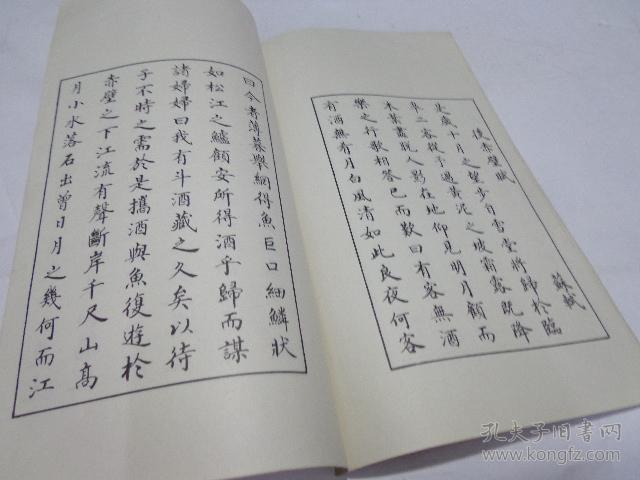 後赤壁賦
蘇軾
是歲十月之望步自雪堂將歸於臨
皋二客從予過黃泥之坂霜露既降
木葉盡脫人影在地仰見明月顧而
樂之行歌相答已而歎曰有客無酒
有酒無肴月白風清如此良夜何客
曰今者薄暮舉網得魚巨口細鱗狀
如松江之鱸顧安所得酒乎歸而謀
諸婦婦曰我有斗酒藏之久矣以待
子不時之需於是攜酒與魚復遊於
赤壁之下江流有聲斷岸千尺山高
月小水落石出曾日月之幾何而江
孔夫子旧书网
www.kongfz.com